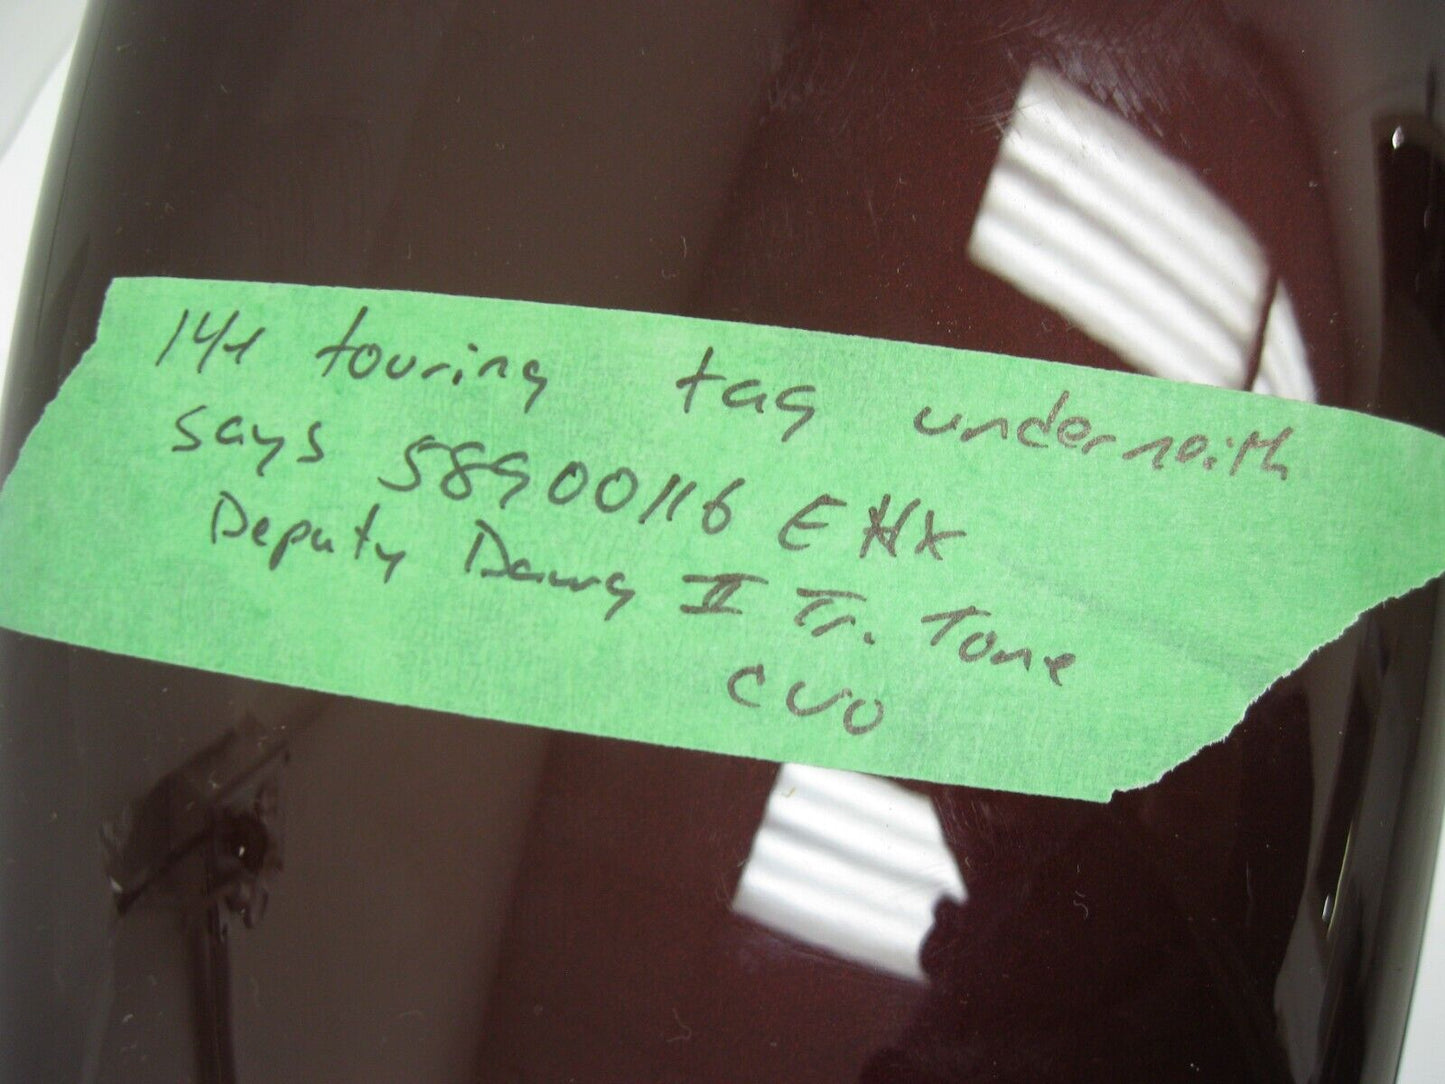 14+ touring tag underneith
says 58900116 EHK
Deputy Dawg II Tr. Tone
CVO